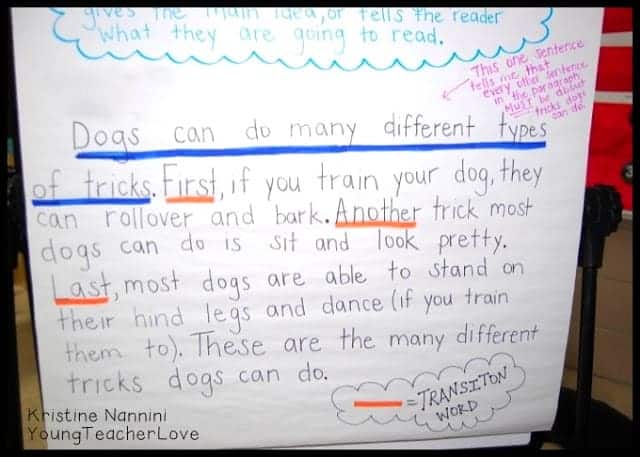 gives the main idea, or tells the reader
what they are going to read.
This one sentence
tells me that
every other sentence
in the paragraph
MUST be about
tricks dogs
can do.
Dogs can do many different types
of tricks. First, if you train your dog, they
can rollover and bark. Another trick most
dogs can do is sit and look pretty.
Last, most dogs are able to stand on
their hind legs and dance (if you train
them to). These are the many different
tricks dogs can do.
= TRANSITON
WORD
Kristine Nannini
YoungTeacherLove